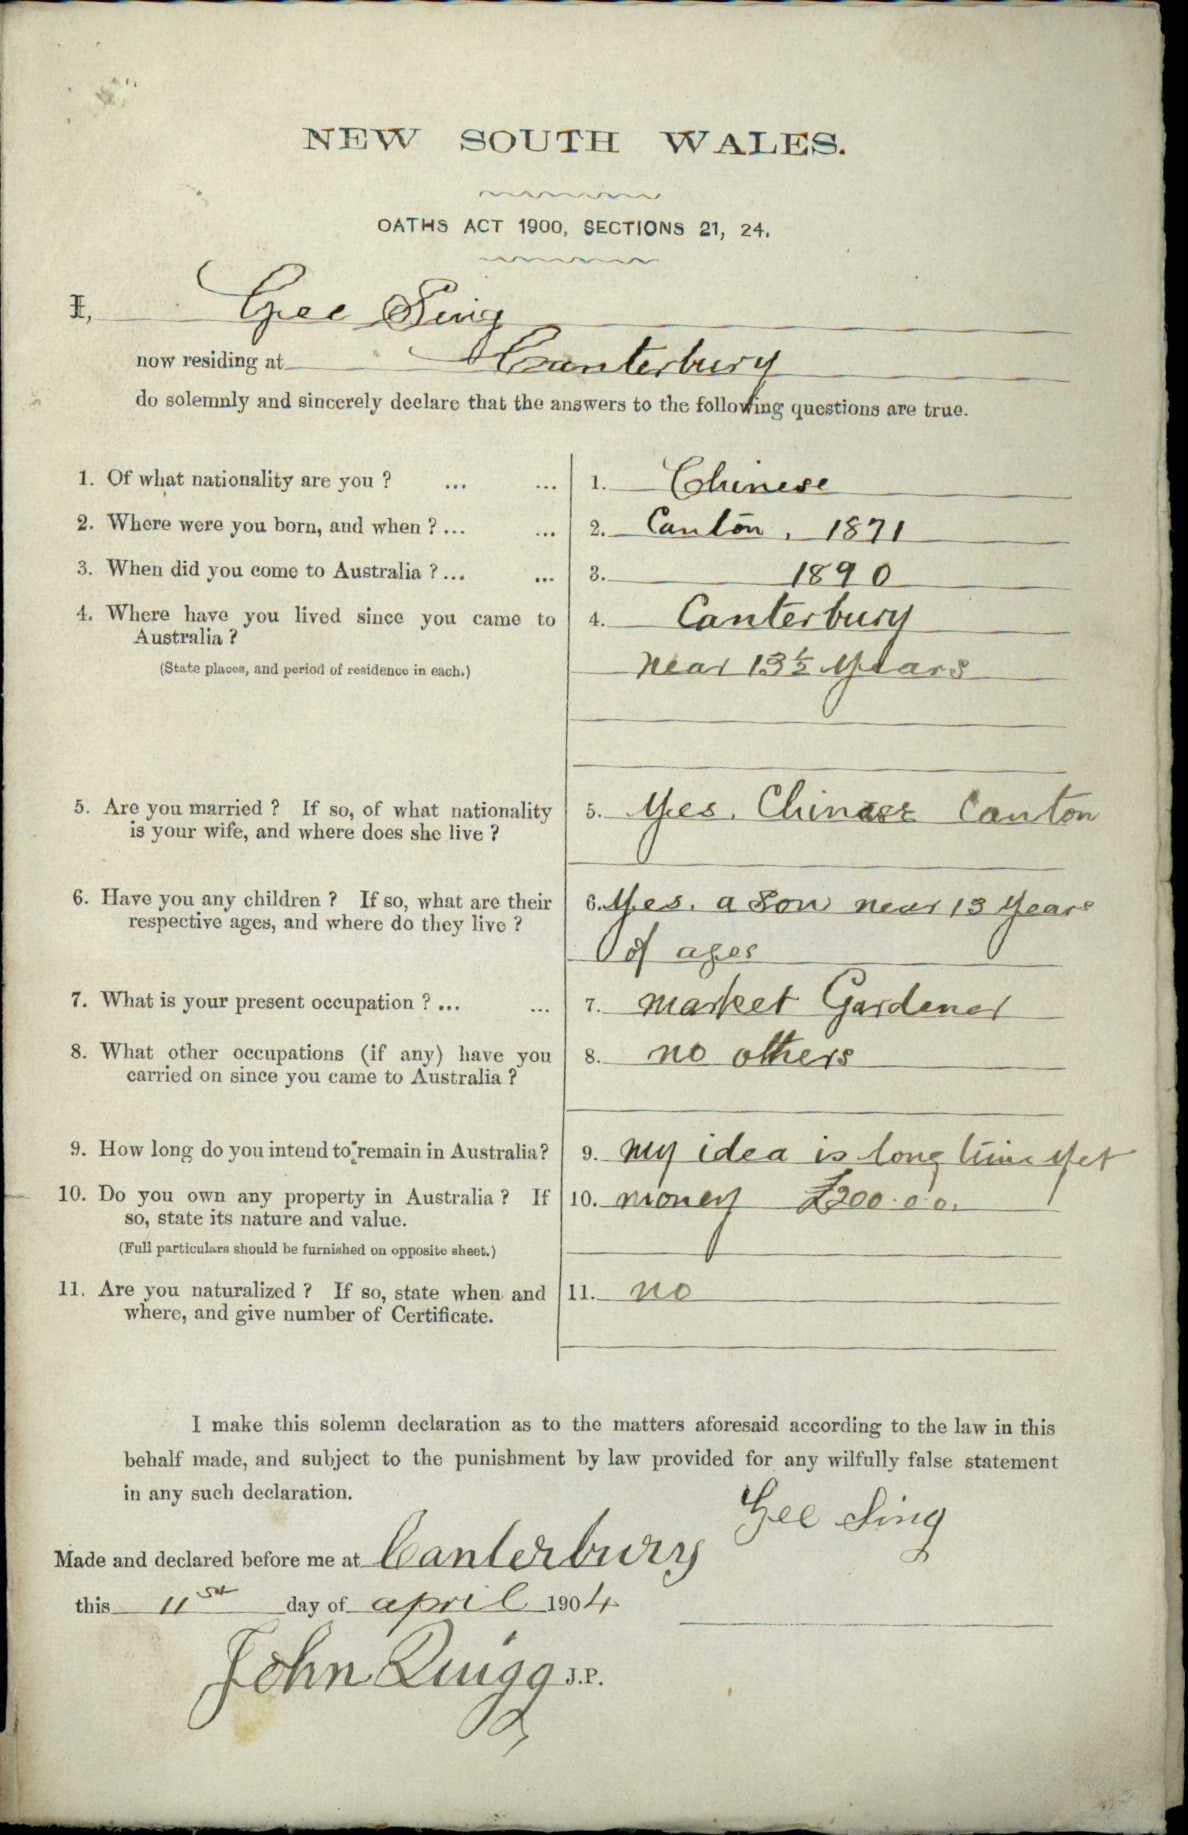 NEW SOUTH WALES.
OATHS ACT 1900, SECTIONS 21, 24.
I, Gee Sing
now residing at Canterbury
do solemnly and sincerely declare that the answers to the following questions are true.
1. Of what nationality are you ? ... ... 1. Chinese
2. Where were you born, and when ? ... ... 2. Canton. 1871
3. When did you come to Australia ? ... ... 3. 1890
4. Where have you lived since you came to 4. Canterbury
Australia ?
(State places, and period of residence in each.) near 13½ years
5. Are you married ? If so, of what nationality 5. Yes. Chinese Canton
is your wife, and where does she live ?
6. Have you any children ? If so, what are their 6. Yes. a son near 13 years
respective ages, and where do they live ?
of ages
7. What is your present occupation ? ... ... 7. market Gardener
8. What other occupations (if any) have you 8. no others
carried on since you came to Australia ?
9. How long do you intend to remain in Australia? 9. my idea is long time yet
10. Do you own any property in Australia ? If 10. money £200.0.0.
so, state its nature and value.
(Full particulars should be furnished on opposite sheet.)
11. Are you naturalized ? If so, state when and 11. no
where, and give number of Certificate.
I make this solemn declaration as to the matters aforesaid according to the law in this
behalf made, and subject to the punishment by law provided for any wilfully false statement
in any such declaration.
Gee Sing
Made and declared before me at Canterbury
this 11st day of april 1904
John Quigg J.P.